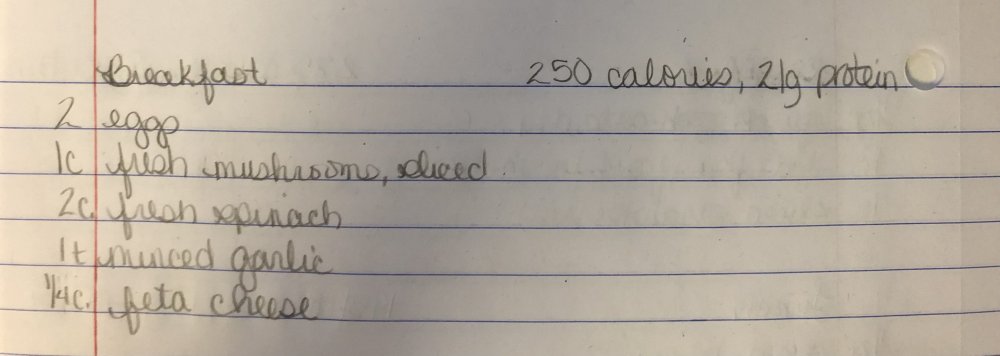 Breakfast 250 calories, 21g protein
2 eggs
1c fresh mushrooms, sliced
2c. fresh spinach
1t minced garlic
1/4c. feta cheese